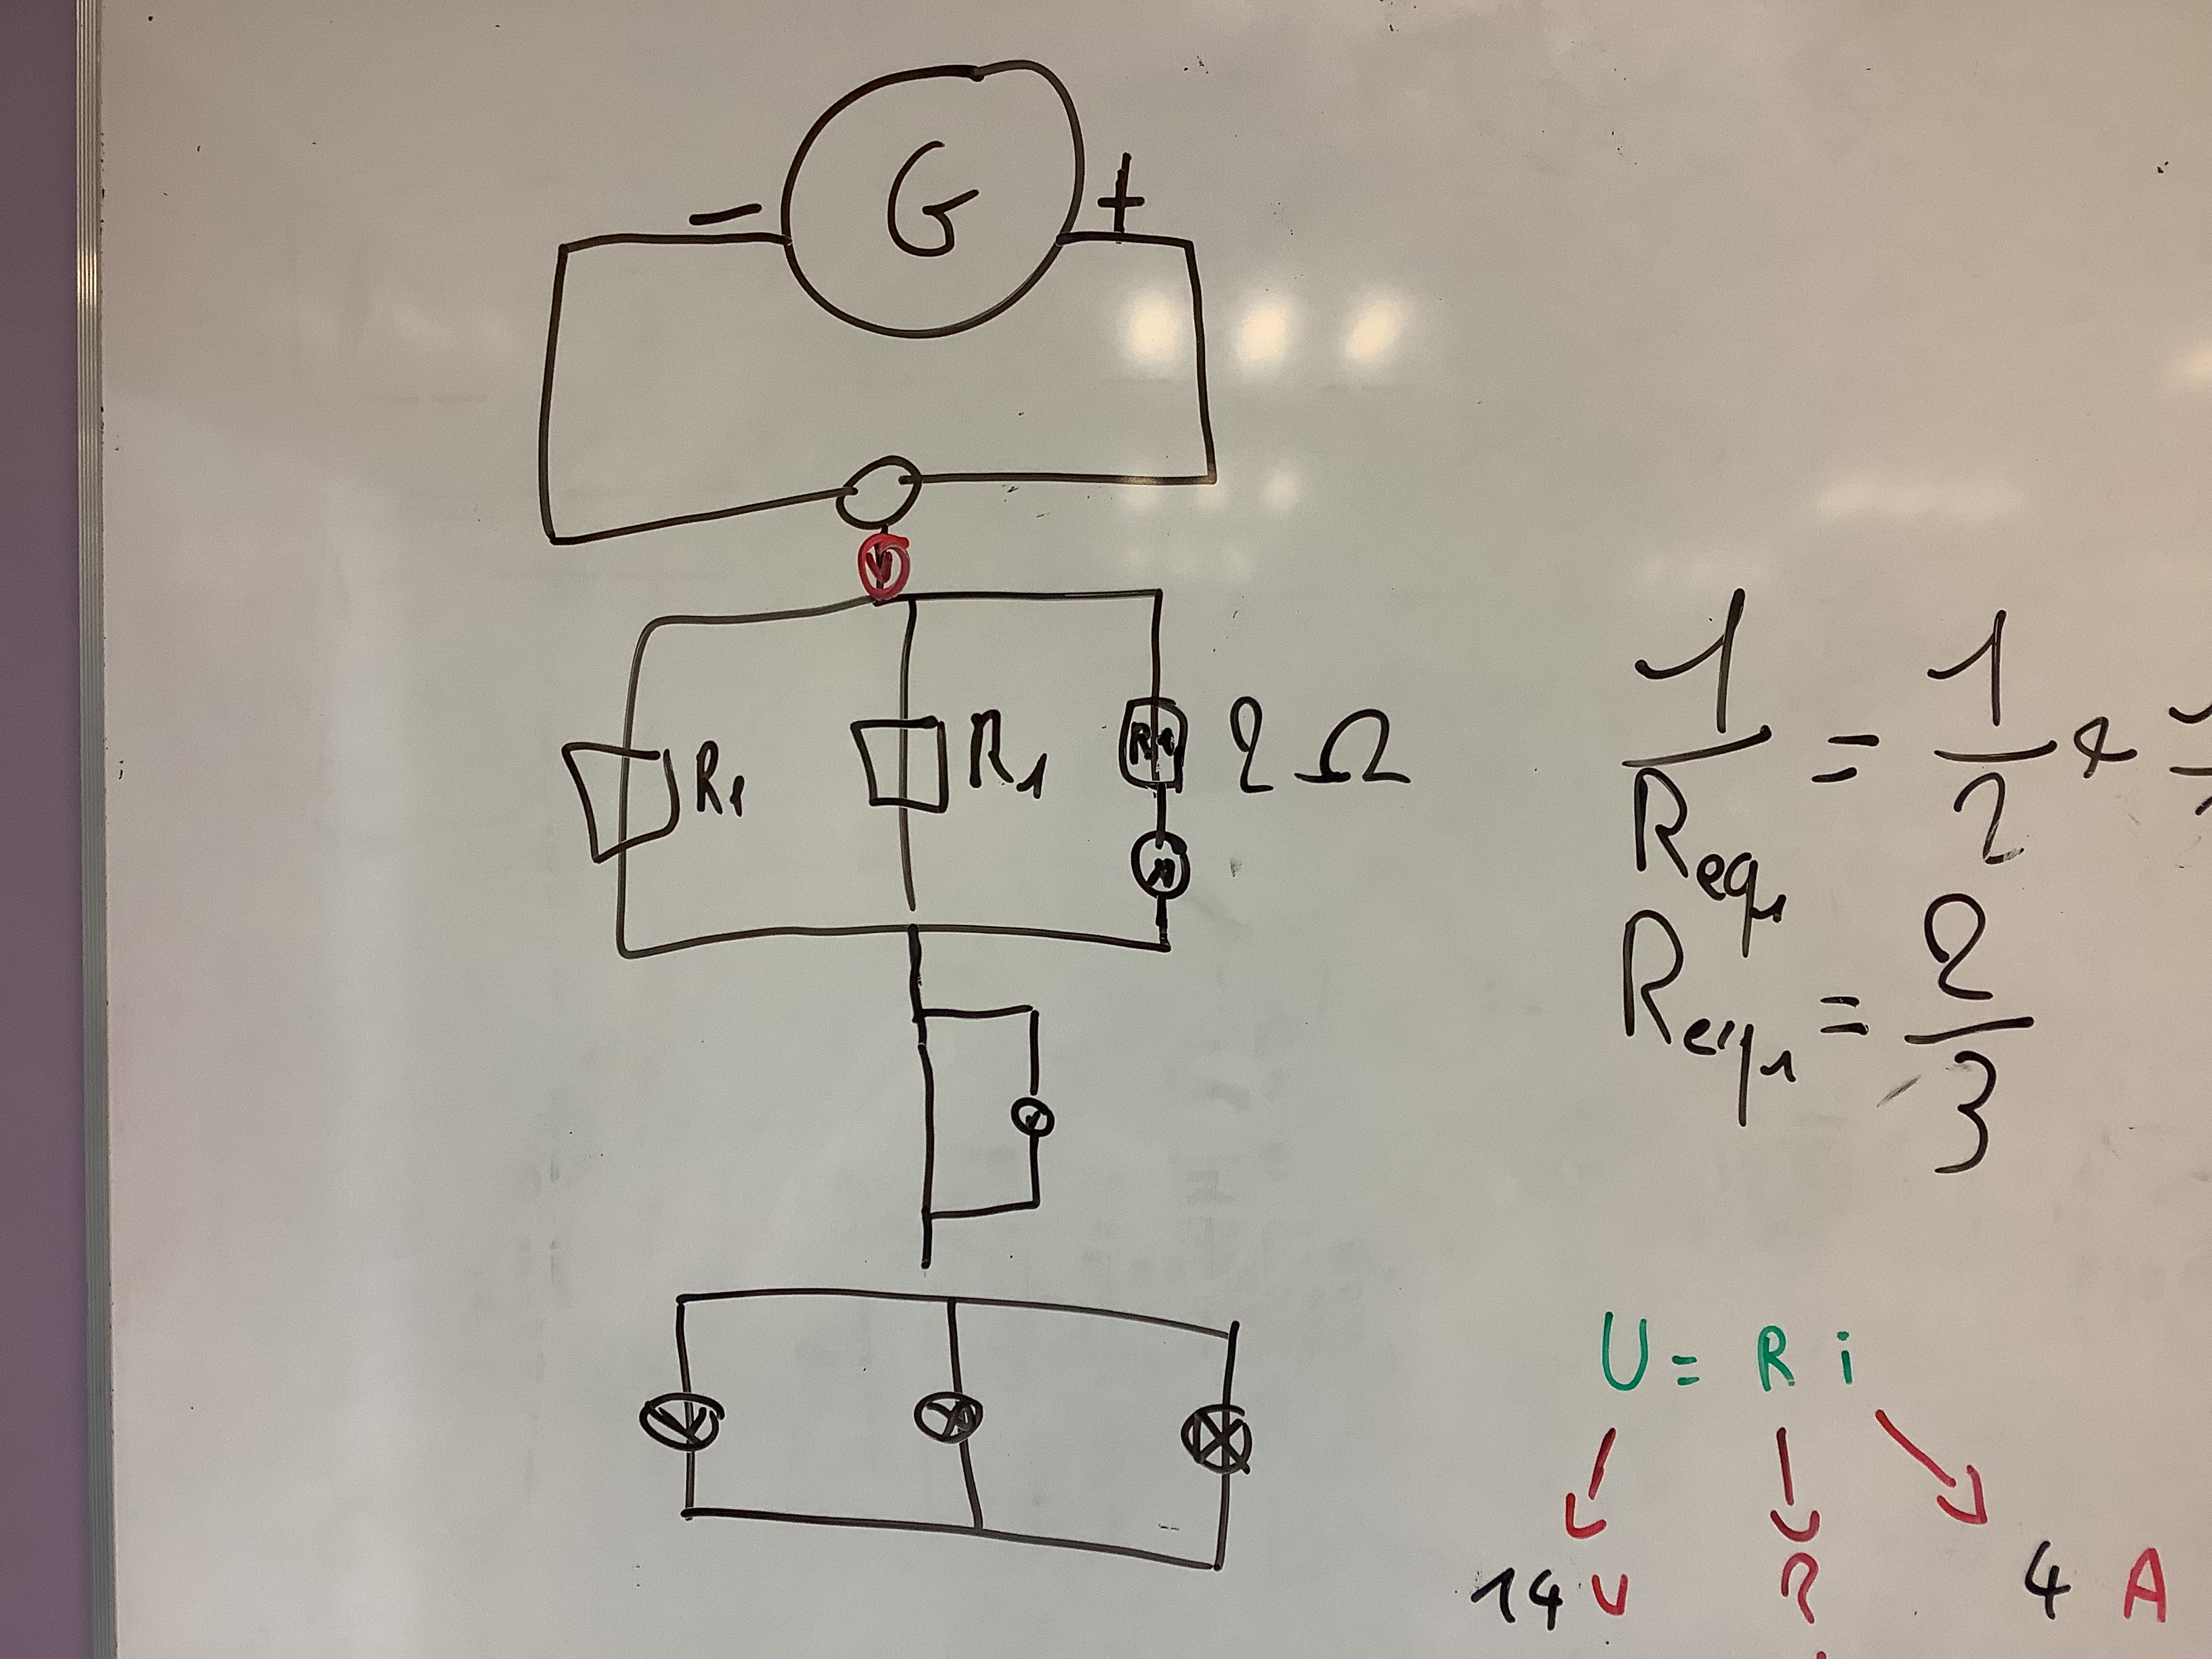 G
- +
V
R1 R1 2 Ω
1/Req1 = 1/2 +
Req1 = 2/3
U = R i
14 V ? 4 A